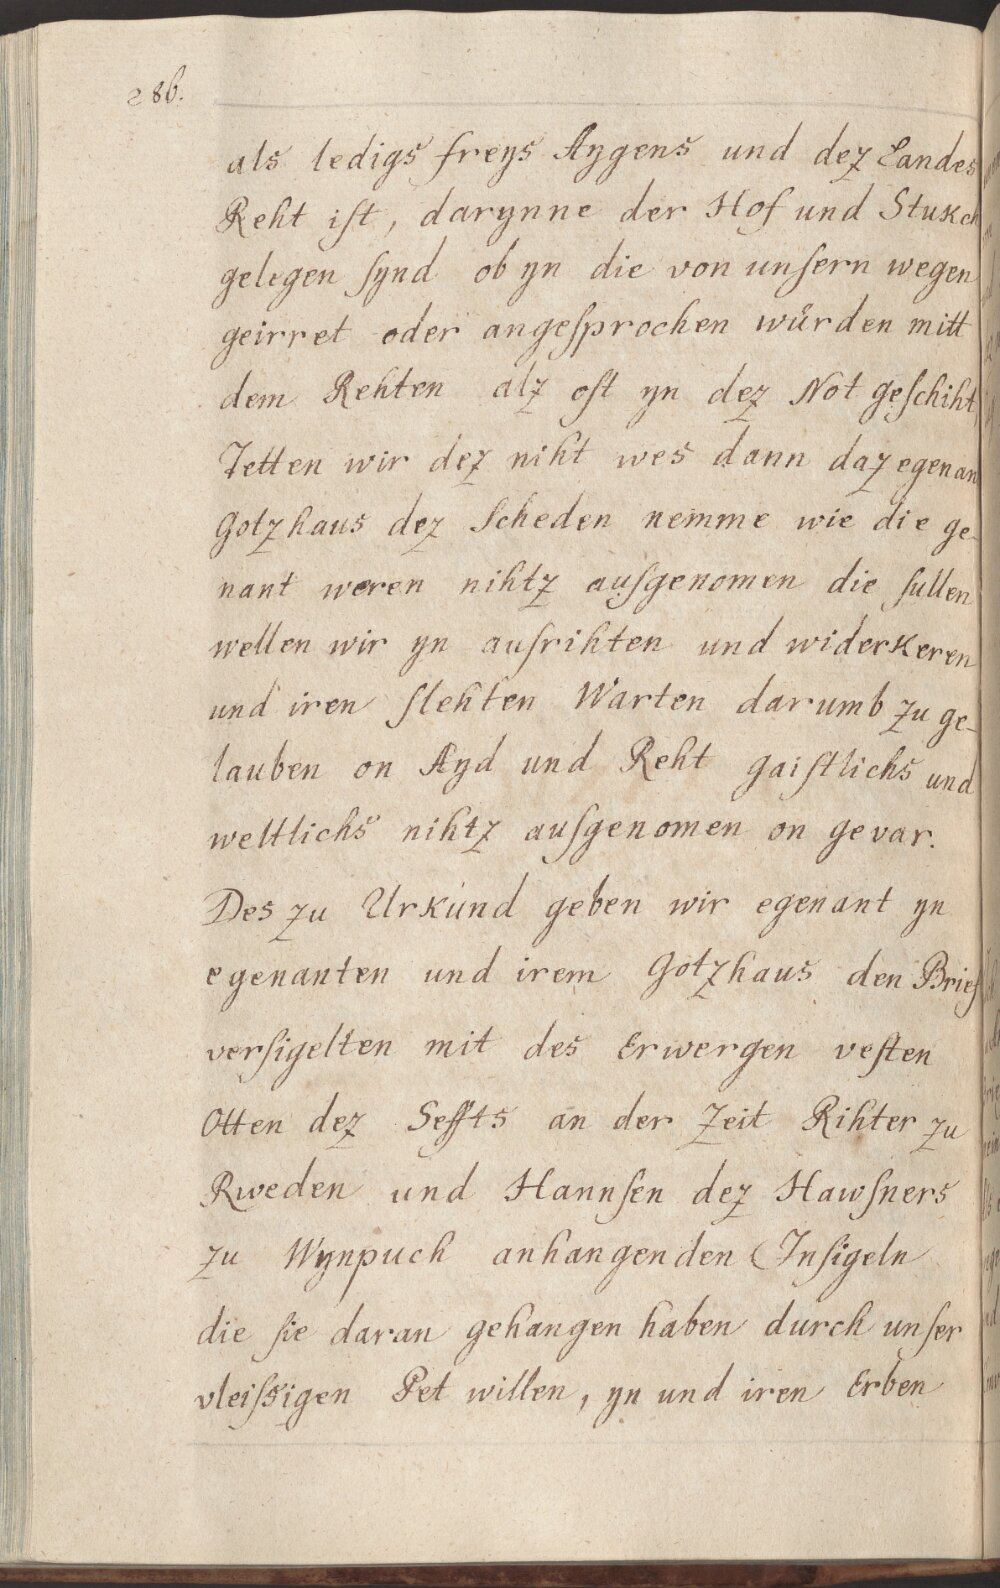 286.
als ledigs freys Aygens und dez Landes
Reht iſt, darynne der Hof und Stukch
gelegen ſynd ob yn die von unſern wegen
geirret oder angeſprochen würden mitt
dem Rehten alz oft yn dez Not geſchiht,
Tetten wir dez niht wes dann daz egenan
Gotzhaus dez Scheden nemme wie die ge-
nant weren nihtz auſgenomen die ſullen
wellen wir yn aufrihten und widerkeren
und iren ſlehten Warten darumb zu ge-
lauben on Ayd und Reht gaiſtlichs und
weltlichs nihtz auſgenomen on gevar.
Des zu Urkund geben wir egenant yn
egenanten und irem Gotzhaus den Brief
verſigelten mit des Erwergen veſten
Otten dez Seffts an der Zeit Rihter zu
Rweden und Hannſen dez Hawſners
zu Wynpuch anhangenden Inſigeln
die ſie daran gehangen haben durch unſer
vleiſsigen Pet willen, yn und iren Erben